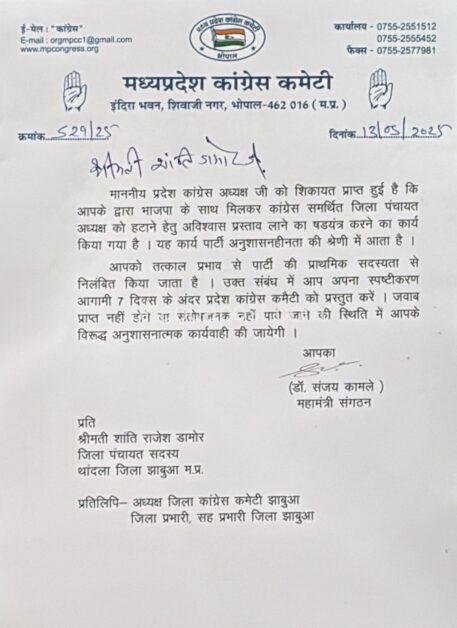 ई-मेल : "कांग्रेस"
E-mail : orgmpcc1@gmail.com
www.mpcongress.org
मध्य प्रदेश कांग्रेस कमेटी
भोपाल
कार्यालय - 0755-2551512
0755-2555452
फैक्स - 0755-2577981
मध्यप्रदेश कांग्रेस कमेटी
इंदिरा भवन, शिवाजी नगर, भोपाल-462 016 (म.प्र.)
क्रमांक 529/25
दिनांक 13/05/2025
श्रीमती शांति डामोर जी
माननीय प्रदेश कांग्रेस अध्यक्ष जी को शिकायत प्राप्त हुई है कि
आपके द्वारा भाजपा के साथ मिलकर कांग्रेस समर्थित जिला पंचायत
अध्यक्ष को हटाने हेतु अविश्वास प्रस्ताव लाने का षडयंत्र करने का कार्य
किया गया है । यह कार्य पार्टी अनुशासनहीनता की श्रेणी में आता है ।
आपको तत्काल प्रभाव से पार्टी की प्राथमिक सदस्यता से
निलंबित किया जाता है । उक्त संबंध में आप अपना स्पष्टीकरण
आगामी 7 दिवस के अंदर प्रदेश कांग्रेस कमेटी को प्रस्तुत करें । जवाब
प्राप्त नहीं होने या संतोषजनक नहीं पाये जाने की स्थिति में आपके
विरूद्ध अनुशासनात्मक कार्यवाही की जायेगी ।
आपका
(डॉ. संजय कामले )
महामंत्री संगठन
प्रति
श्रीमती शांति राजेश डामोर
जिला पंचायत सदस्य
थांदला जिला झाबुआ म.प्र.
प्रतिलिपि– अध्यक्ष जिला कांग्रेस कमेटी झाबुआ
जिला प्रभारी, सह प्रभारी जिला झाबुआ